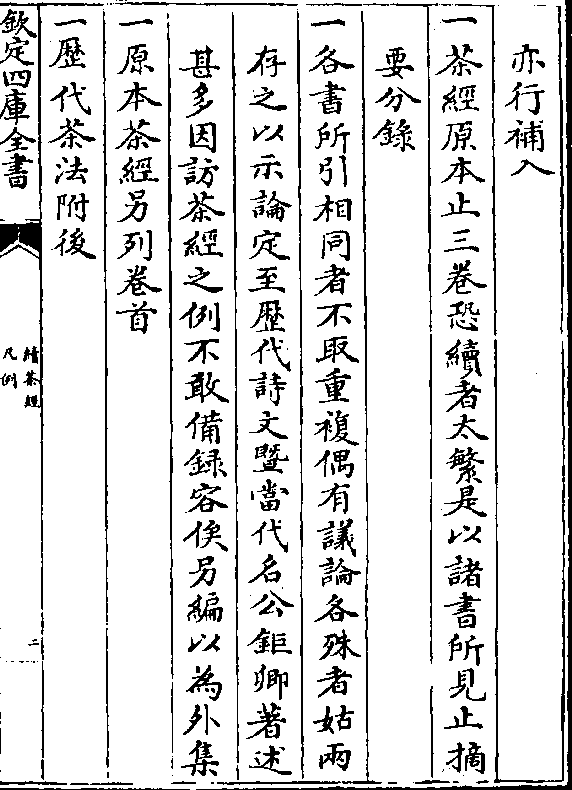 亦行補入
一茶經原本止三卷恐續者太繁是以諸書所見止摘
要分錄
一各書所引相同者不取重複偶有議論各殊者姑兩
存之以示論定至歷代詩文暨當代名公鉅卿著述
甚多因訪茶經之例不敢備録容俟另編以為外集
一原本茶經另列卷首
一歷代茶法附後
欽定四庫全書
續茶經
凡例
二